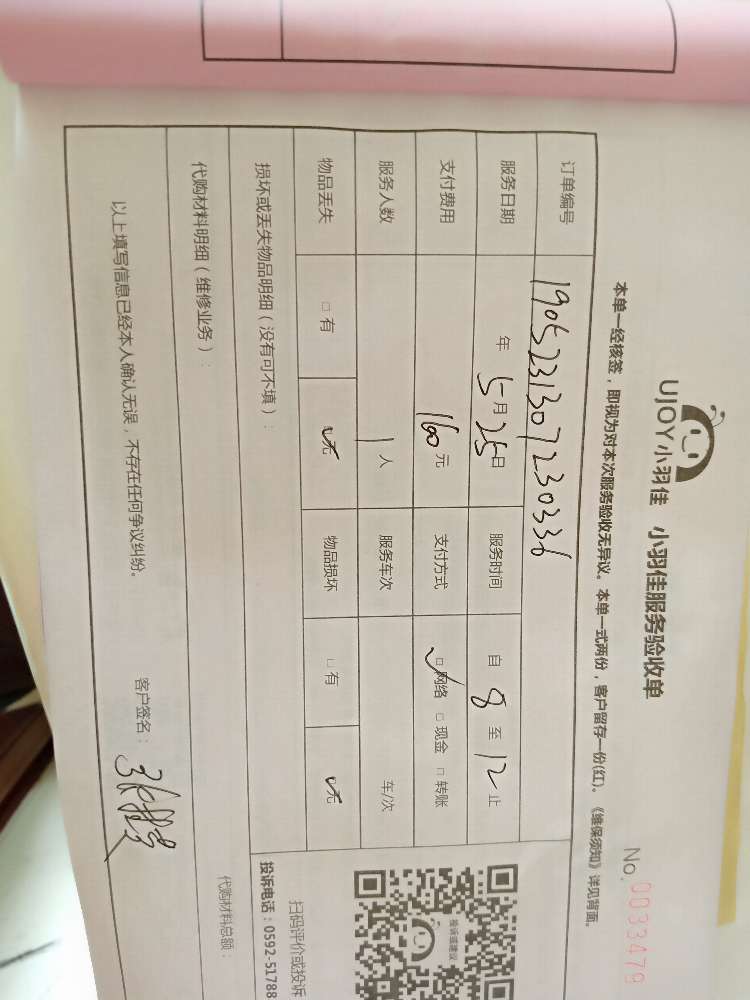 UJOY小羽佳 小羽佳服务验收单
No.0033479
本单一经核签，即视为对本次服务验收无异议。本单一式两份，客户留存一份(红)。《维保须知》详见背面。
订单编号 1905231307230336
服务日期 年 5月25日 服务时间 自 8 至 12 止
支付费用 160元 支付方式 ☑网络 □现金 □转账
服务人数 1人 服务车次 车/次
物品丢失 □有 ☑无 物品损坏 □有 ☑无
损坏或丢失物品明细（没有可不填）：
代购材料明细（维修业务）：
代购材料总额：
以上填写信息已经本人确认无误，不存在任何争议纠纷。 客户签名：
投诉或建议
扫码评价或投诉
投诉电话：0592-51788